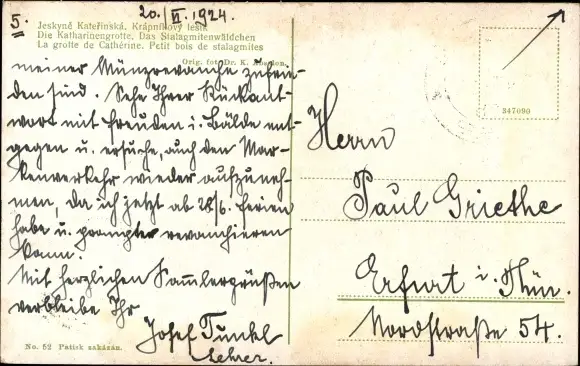 5.
20./VI. 1924.
Jeskyně Kateřinská, Krápníkový lesík
Die Katharinengrotte, Das Stalagmitenwäldchen
La grotte de Cathérine. Petit bois de stalagmites
Orig. fot. Dr. K.
meiner Münzrevanche zufrie-
den sind. Sehe Ihrer Rückant-
wort mit Freuden i. Bälde ent-
gegen u. ersuche, auch den Mar-
kenverkehr wieder aufzuneh-
men, da ich jetzt ab 28/6. Ferien
habe u. prompter revanchieren
kann.
Mit herzlichen Sammlergrüßen
verbleibe Ihr
Josef Tunkel
Lehrer.
No. 52 Patisk zakázán.
347090
Herrn
Paul Griethe
Erfurt i. Thür.
Nordstraße 54.